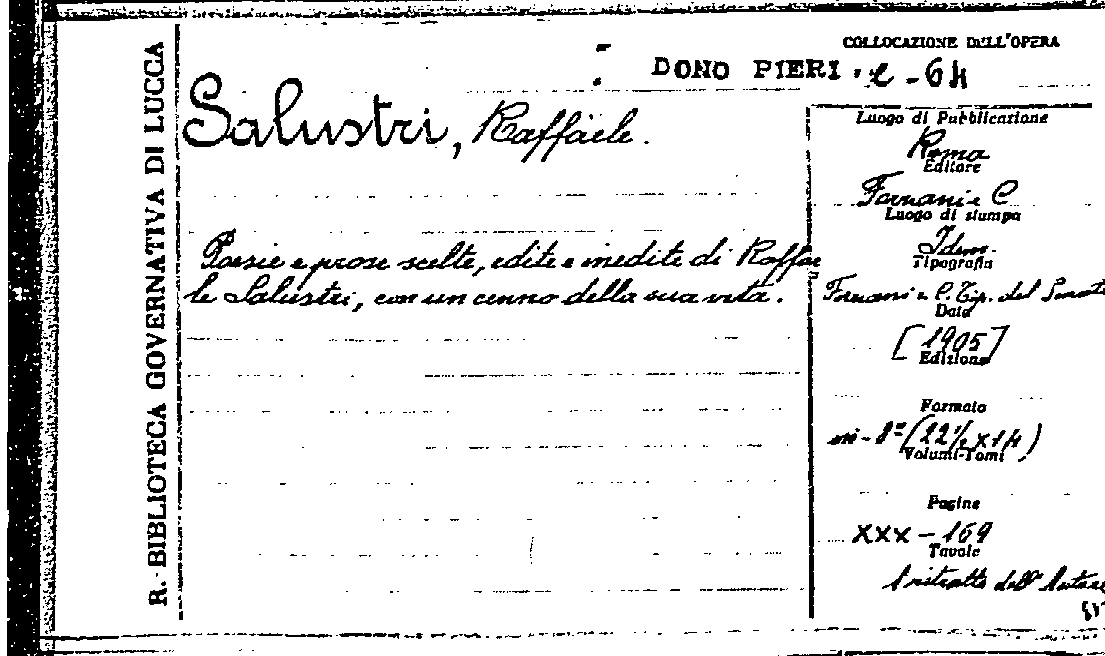 R. BIBLIOTECA GOVERNATIVA DI LUCCA
COLLOCAZIONE DELL'OPERA
DONO PIERI
Salustri, Raffaele.
Poesie e prose scelte, edite e inedite di Raffae
le Salustri, con un cenno della sua vita.
Luogo di Pubblicazione
Roma
Editore
Forzani e C
Luogo di stampa
Idem.
Tipografia
Forzani e C. Tip. del Senato
Data
[1905]
Edizione
Formato
in-8º (22½ x 14)
Volumi-Tomi
Pagine
XXX - 169
Tavole
1 ritratto dell' Autore